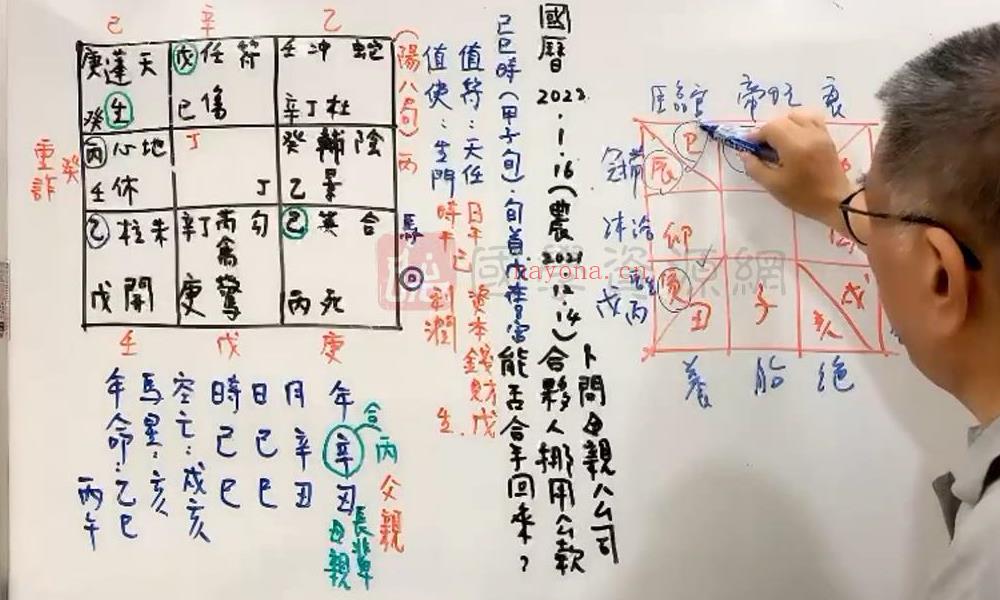 己 辛 乙
庚 蓬 天
癸 生
戊 任 符
己 傷
壬 冲 蛇
辛 丁 杜
丙 心 地
壬 休
丁
丁
癸 輔 陰
乙 景
乙 柱 朱
戊 開
辛 丁 芮 勾
禽
庚 驚
己 英 合
丙 死
重詐
癸
丙
馬
壬 戊 庚
國曆 2022.1.16(農2021.12.14)
卜問母親公司
合夥人挪用公款
能否合乎回來?
己巳時(甲子旬).旬首戊在
(陽八局)
值符:天任
值使:生門
日干 己 資本
時干 利潤
錢財戊
生
年 辛 丑
月 辛 丑
日 己 巳
時 己 巳
空亡:戌亥
馬星:亥
年命:乙巳
丙午
合
丙
父親
長輩
母親
帝旺 衰
冠帶
沐浴
戊丙
巳
辰
卯
寅
丑
子
亥
戌
養 胎 絕
國學資源網
nayona.cn